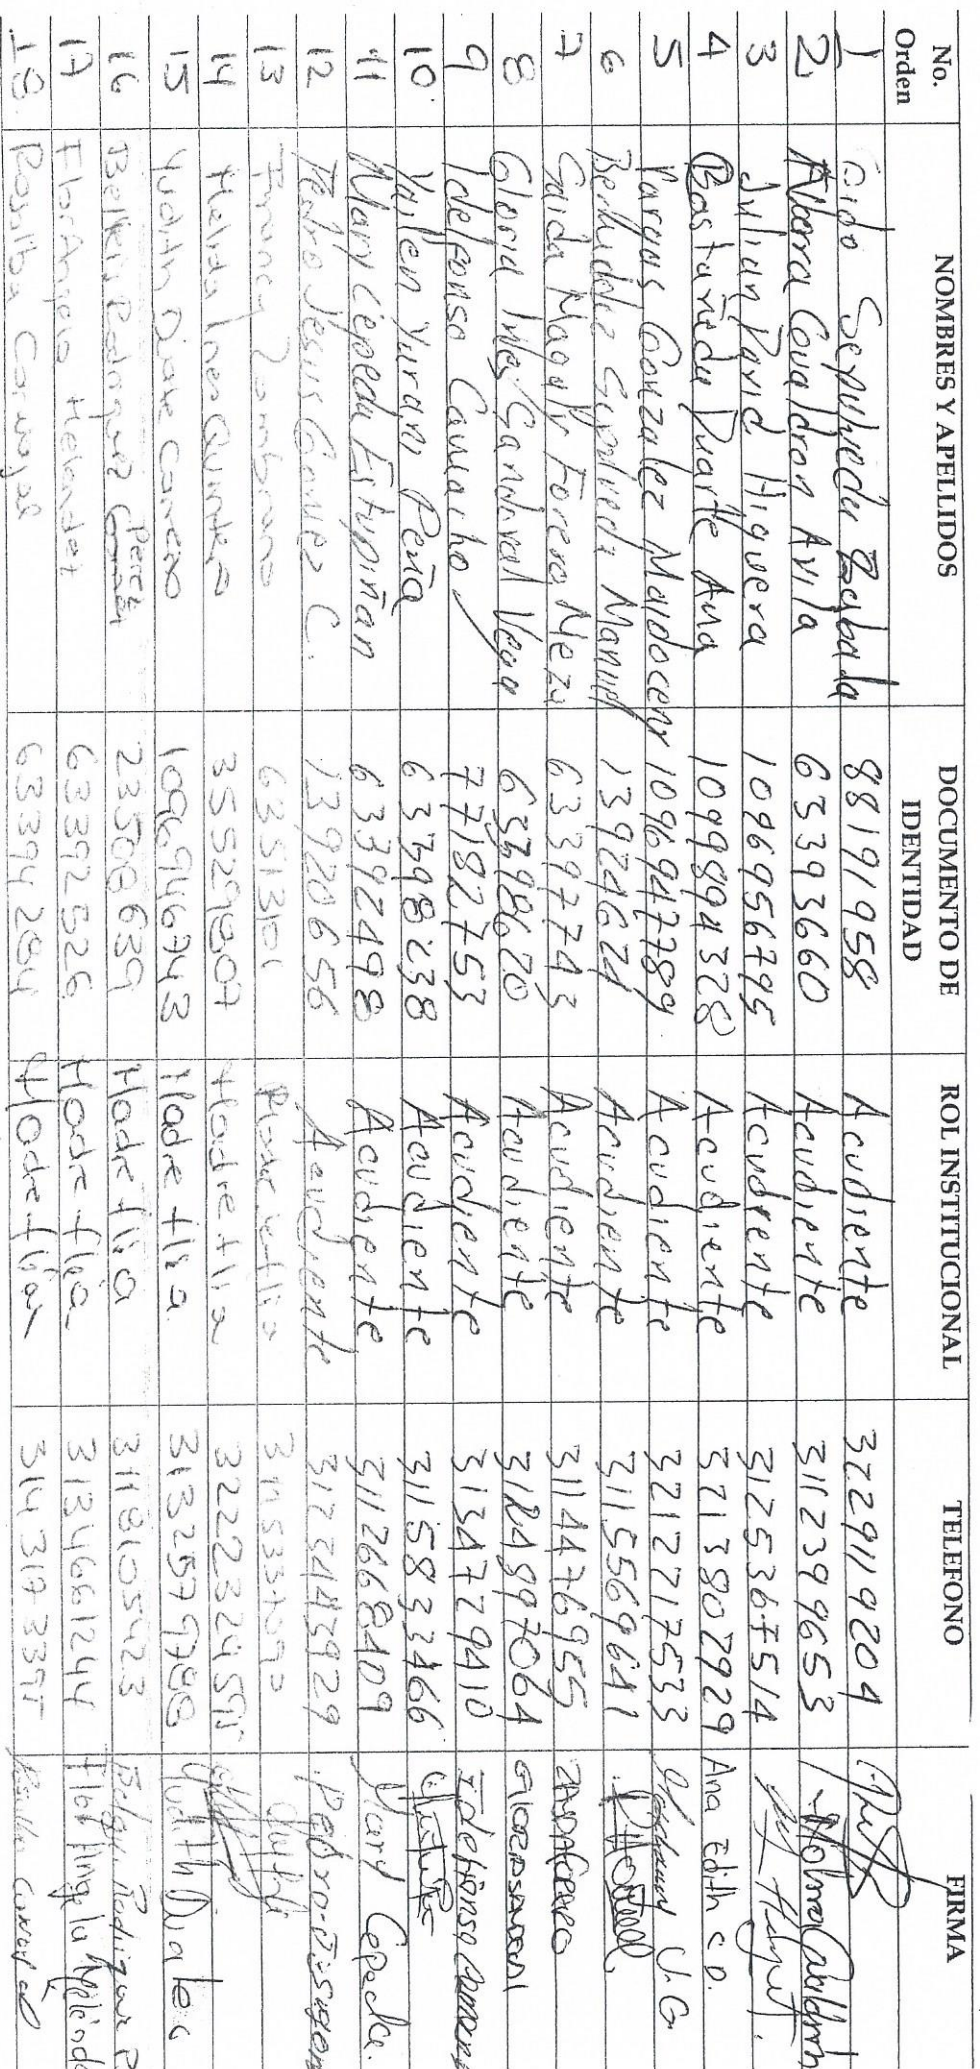 No. Orden NOMBRES Y APELLIDOS DOCUMENTO DE IDENTIDAD ROL INSTITUCIONAL TELEFONO FIRMA
1 Sepulveda 88191958 Acudiente 3229119204
2 Albarra Covaldron Avila 63393660 Acudiente 3112399653
3 Julian David Higuera 1096956795 Acudiente 3125367514
4 Bastañedu Duarte Ana 1099894328 Acudiente 3213802929 Ana Edith C D.
5 Vargas Gonzalez Maldocenr 1096947789 Acudiente 3212717533 U. G
6 Bechidde Sepulveda Manuel 13924624 Acudiente 3115569641
7 Saida Magaly Forero Meza 63397743 Acudiente 3114476955
8 Gloria Ines Sandoval Vega 63398620 Acudiente 3124897064
9 Idelfonso Camacho 77182753 Acudiente 3134729410 Idelfonso
10 Yailen Yurani Peña 63398238 Acudiente 3115833466
11 Mary Cepeda Estupiñan 63392498 Acudiente 3112668409 Mary Cepeda.
12 Pedro Jesus Gomez C. 13920656 Acudiente 3123443929 Pedro
13 Zambrano
14 Helida Ines Quintero 355529807 Madre flia
15 Yudith Diane Carreño 1096946743 Madre flia 3132579788 Yudith
16 Belkis Rodriguez Perez 23508639 Madre flia 3118105423
17 Flor Angela Melendez 63392526 Madre flia 3134666124 Flor Angela
18 Rosalba Carvajal 63394284 Madre flia 3143173375 Rosalba Carvajal